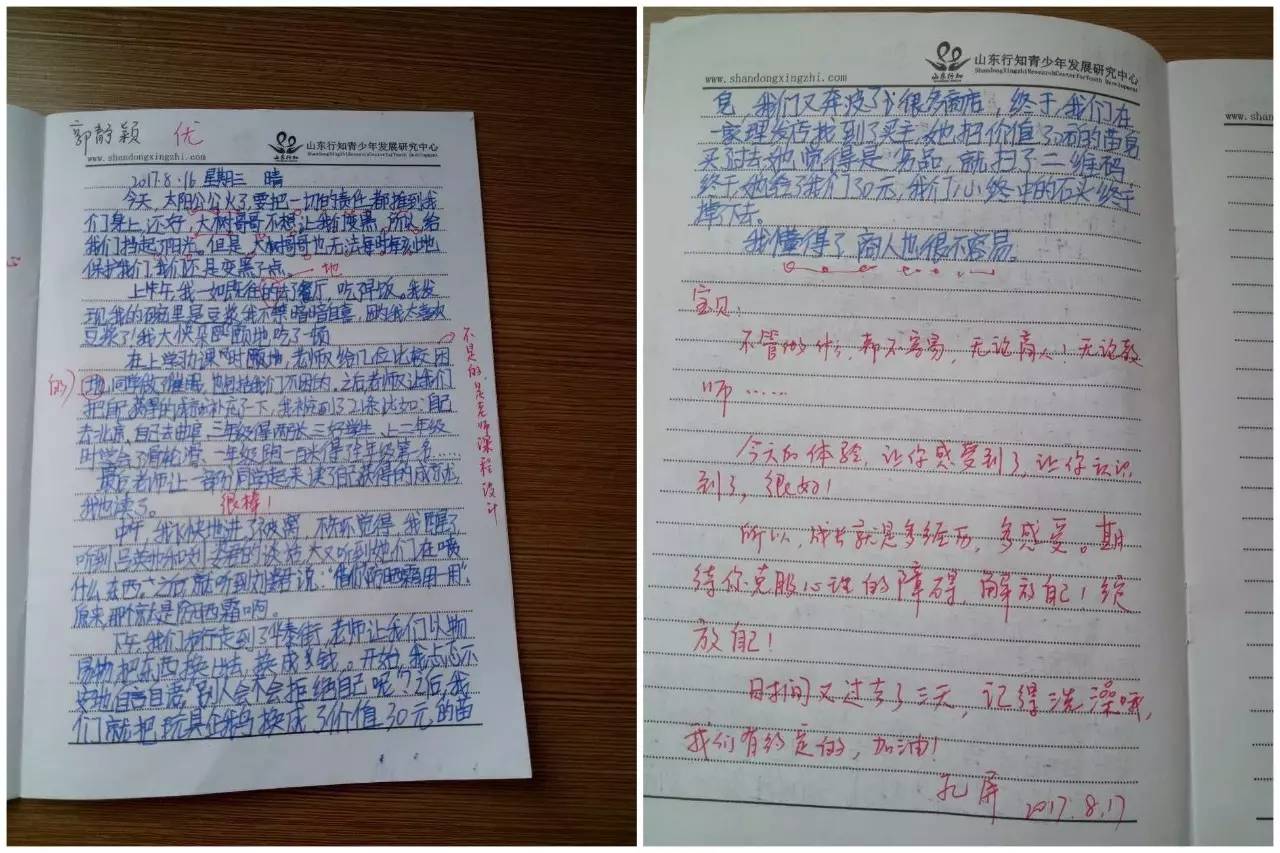 郭静颖 优
山东行知
山东行知青少年发展研究中心
ShandongXingzhiResearchCenterForYouth Development
www.shandongxingzhi.com
2017.8.16 星期三 晴
今天,太阳公公火了,要把一切的责任都推到我
们身上,还好,大树哥哥不想让我们变黑,所以给
我们挡起了阳光。但是,大树哥哥也无法每时每刻地
保护我们,我们还是变黑了点。
地
上午,我一如既往的去了餐厅,吃早饭。我发
现我的碗里是豆浆,我不禁暗暗自喜,因为我太喜欢
豆浆了!我大快朵颐地吃了一顿
在上学习课 时 老师给几位比较困
的) 同学做了 也包括我们不困的,之后老师让我们
把自己获得的成就补充了一下,我补充到了21条比如:自己
去北京,自己去曲阜,三年级得两张三好学生,上二年级
时学会了 一年级 得 年级第一名……
最后老师让一部分同学起来读了自己获得的成就,
我也读了。 很棒!
不是的是老师课程设计
中午,我 快地进了被窝 不知不觉得,我醒了
听到 的谈话,又听到她们在喷
什么东西。之后就听到刘 说:“ 用一用”。
原来,那 是防晒霜啊。
下午,我们步行走到了 泰街,老师让我们以物
易物,把东西换出去,换成多钱。开始,我忐忑不
安地自言自语,“别人会不会拒绝自己呢?”之后,我
们就把玩具企鹅换成了价值30元的苗
www.shandongxingzhi.com
山东行知
山东行知青少年发展研究中心
ShandongXingzhiResearchCenterForYouth Development
www.shandong
我们又奔波了很多商店,终于,我们在
一家理发店找到了买主,她把价值 的苗
买了过去,她觉得是 品,就扫了二维码
终于她给了我们30元,我们心中的石头终于
掉下去。
我懂得了商人也很不容易。
宝贝:
不管做什么,都不容易,无论商人!无论教
师……
今天的体验,让你感受到了,让你认识
到了,很好!
所以,成长就是多经历,多感受。期
待你克服心理的障碍,解放自己!绽
放自己!
时间又过去了三天,记得洗澡哦,
我们有约定的,加油!
孔屏 2017.8.17